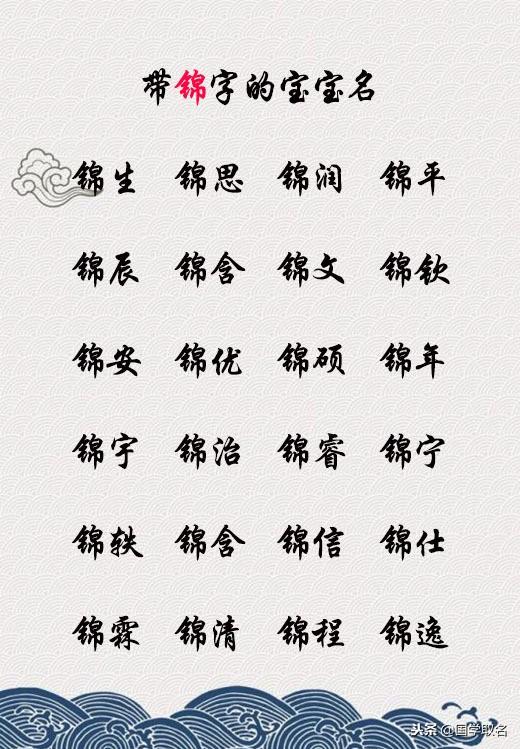 带锦字的宝宝名
锦生 锦思 锦润 锦平
锦辰 锦含 锦文 锦钦
锦安 锦优 锦硕 锦年
锦宇 锦治 锦睿 锦宁
锦轶 锦含 锦信 锦仕
锦霖 锦清 锦程 锦逸
头条 @国学取名